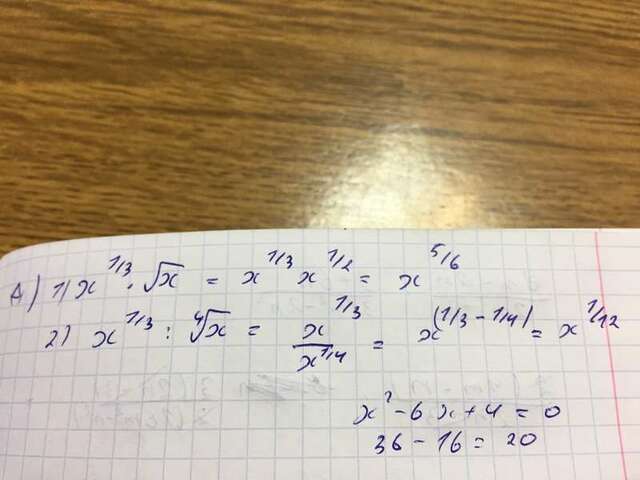 A) 1) x^{1/3} · √x = x^{1/3} x^{1/2} = x^{5/6}
2) x^{1/3} : ∜x = x^{1/3} / x^{1/4} = x^{(1/3 - 1/4)} = x^{1/12}
x² - 6x + 4 = 0
36 - 16 = 20